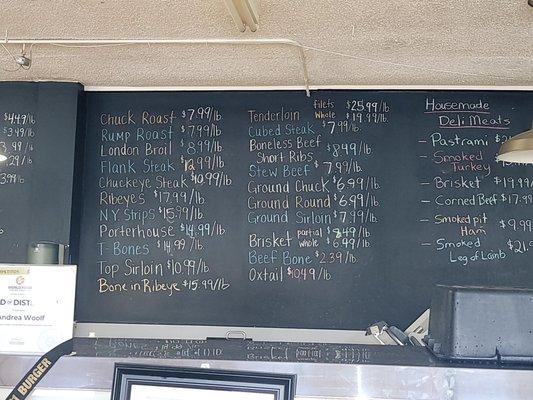 4.49/lb
$3.49/lb
3.99/lb
.29/lb
3.99/lb
Chuck Roast $7.99/lb.
Rump Roast $7.99/lb
London Broil $8.99/lb
Flank Steak $12.99/lb
Chuckeye Steak $10.99/lb
Ribeyes $17.99/lb
NY Strips $15.99/lb
Porterhouse $14.99/lb
T-Bones $14.99/lb
Top Sirloin $10.99/lb
Bone in Ribeye $15.99/lb
Tenderloin Filets $25.99/lb
Whole $19.99/lb.
Cubed Steak $7.99/lb.
Boneless Beef
Short Ribs $8.99/lb
Stew Beef $7.99/lb.
Ground Chuck $6.99/lb.
Ground Round $6.99/lb.
Ground Sirloin $7.99/lb
Brisket partial $8.49/lb
whole $6.49/lb.
Beef Bone $2.39/lb
Oxtail $10.49/lb
Housemade
Deli Meats
- Pastrami
- Smoked
Turkey
- Brisket $19.99/
- Corned Beef $17.9
- Smoked pit
Ham $9.99/
- Smoked
Leg of Lamb $21.9
D OF DIST
Andrea Woolf
BURGER